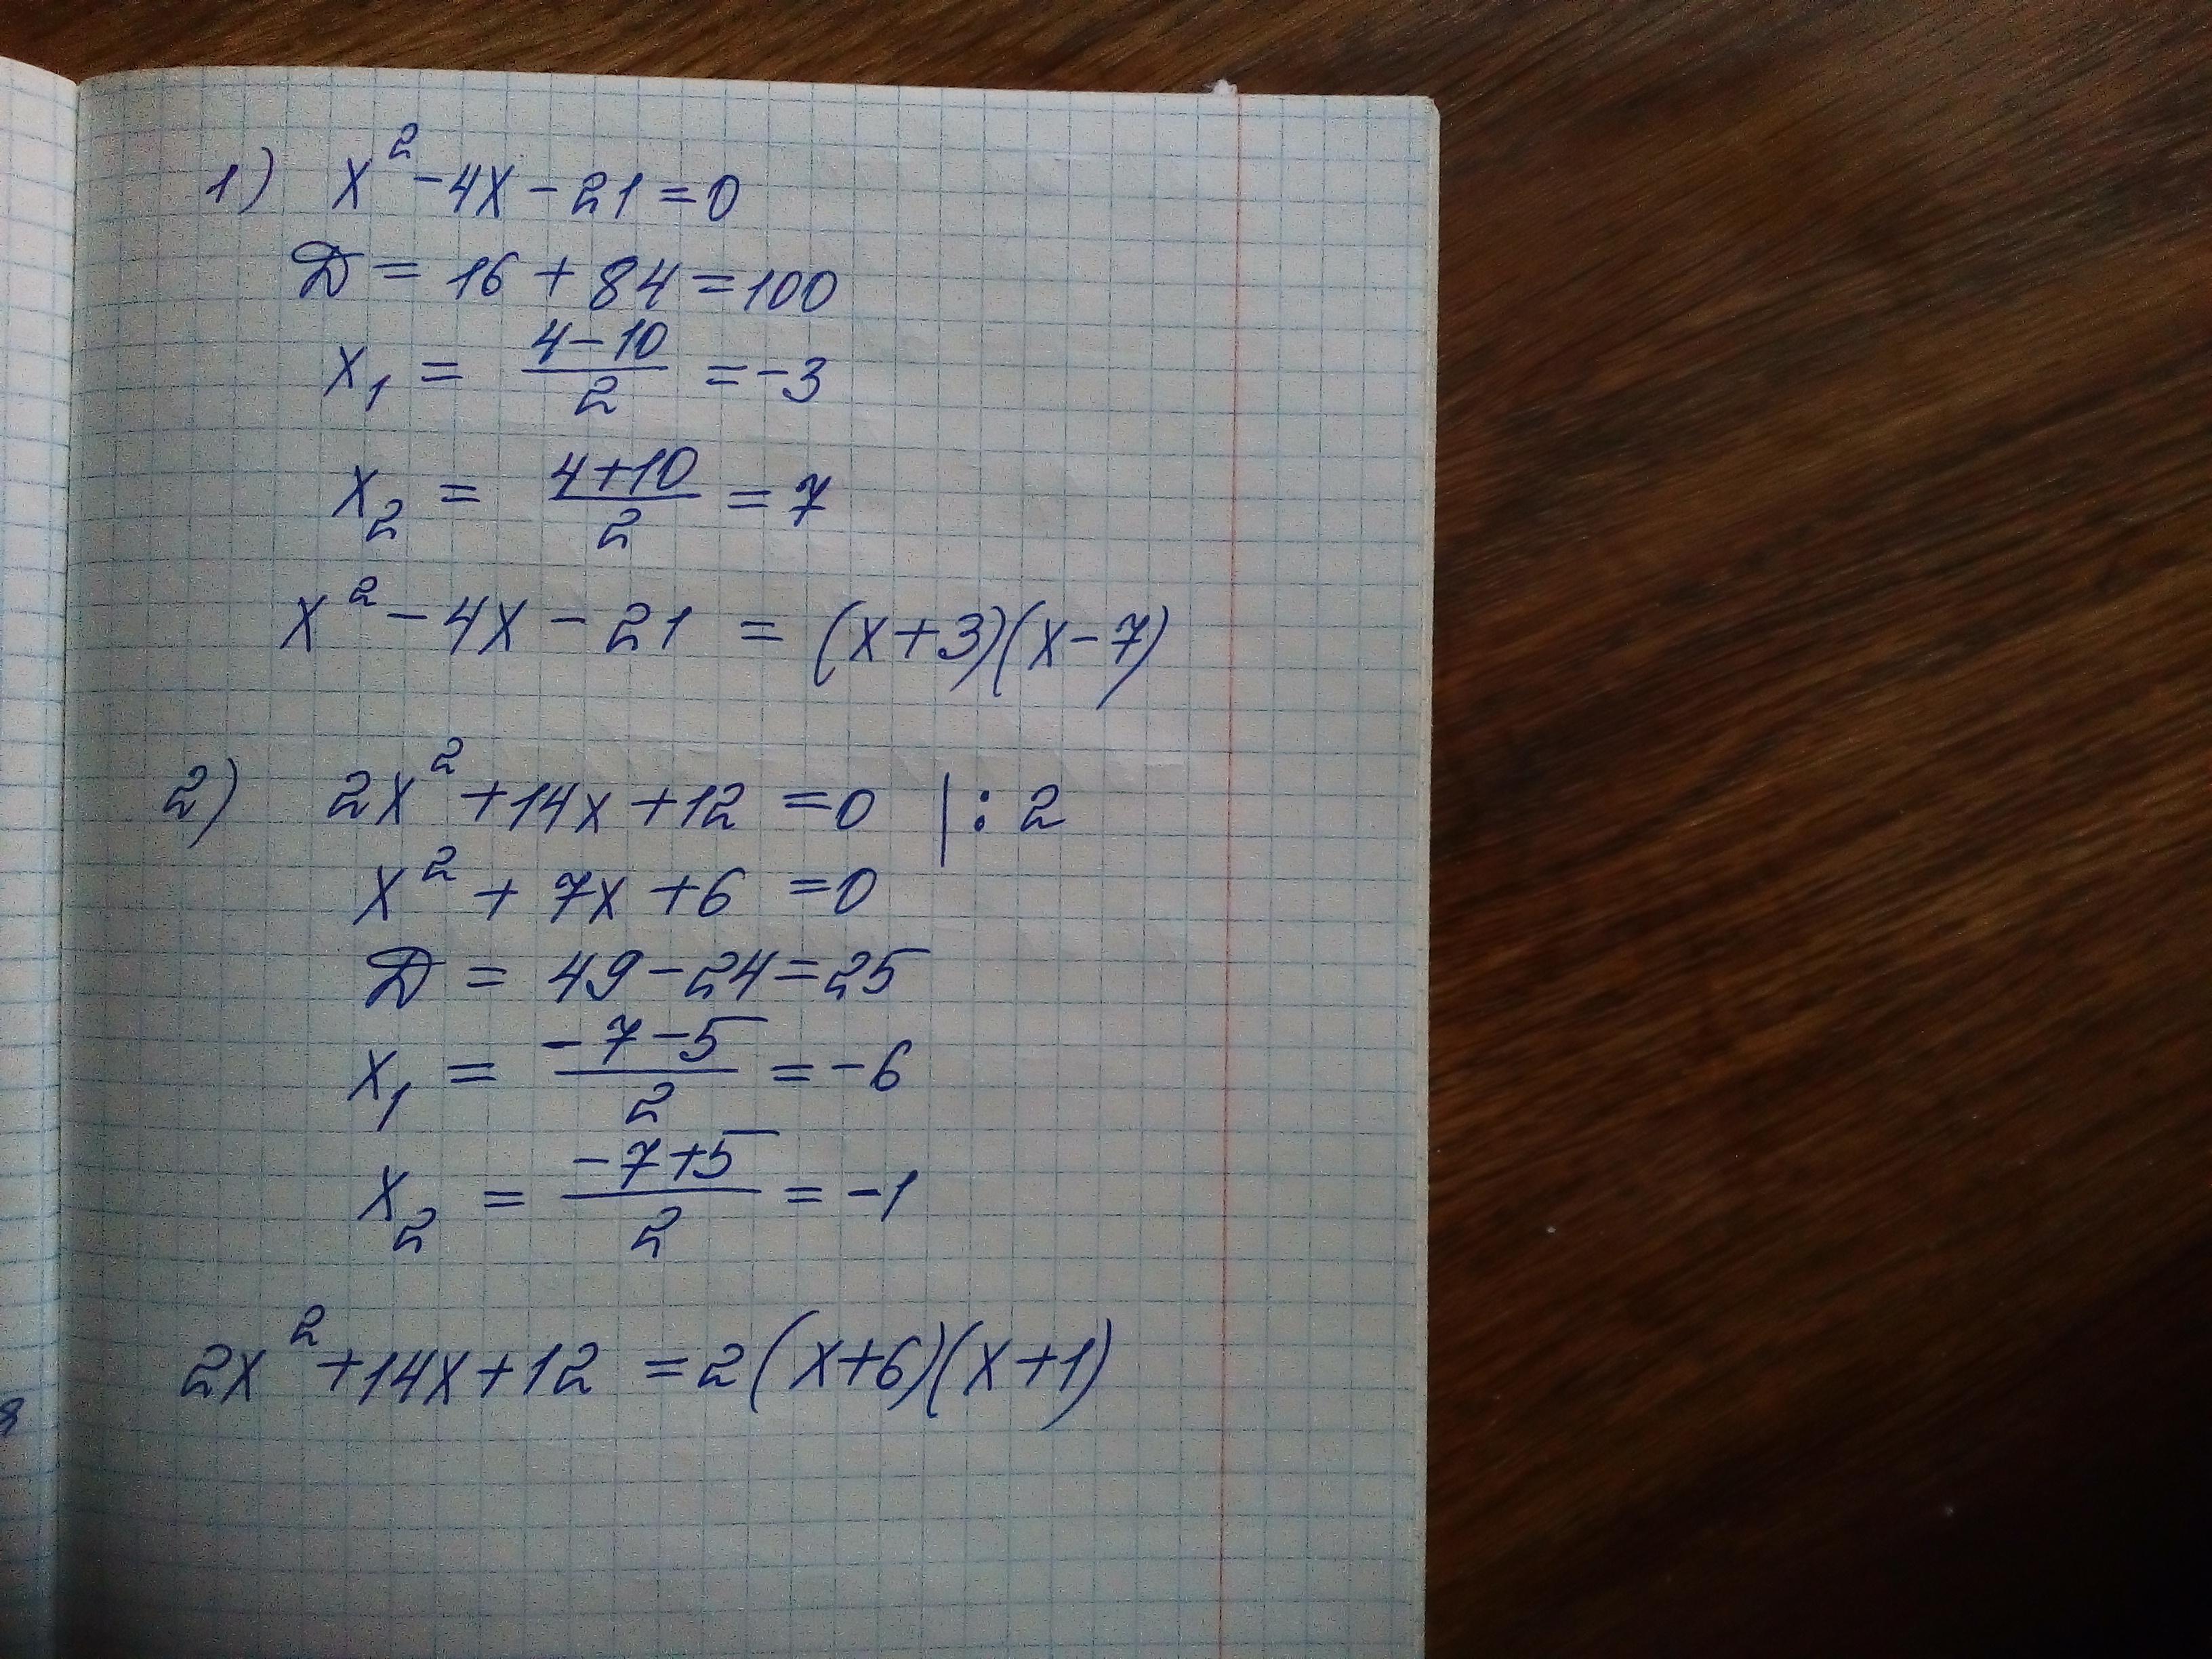 1) x² - 4x - 21 = 0
D = 16 + 84 = 100
x₁ = (4-10)/2 = -3
x₂ = (4+10)/2 = 7
x² - 4x - 21 = (x+3)(x-7)
2) 2x² + 14x + 12 = 0 | : 2
x² + 7x + 6 = 0
D = 49 - 24 = 25
x₁ = (-7-5)/2 = -6
x₂ = (-7+5)/2 = -1
2x² + 14x + 12 = 2(x+6)(x+1)